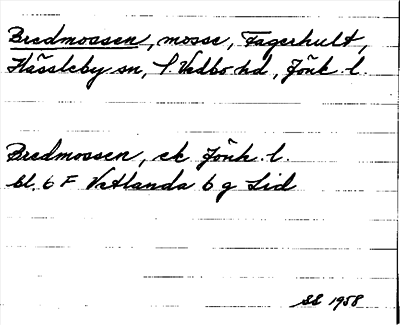 Bredmossen, mosse, Fagerhult,
Hässleby sn, S Vedbo hd, Jönk. l.
Bredmossen, ek Jönk. l.
bl. 6 F Vetlanda 6 g Lid
SE 1958